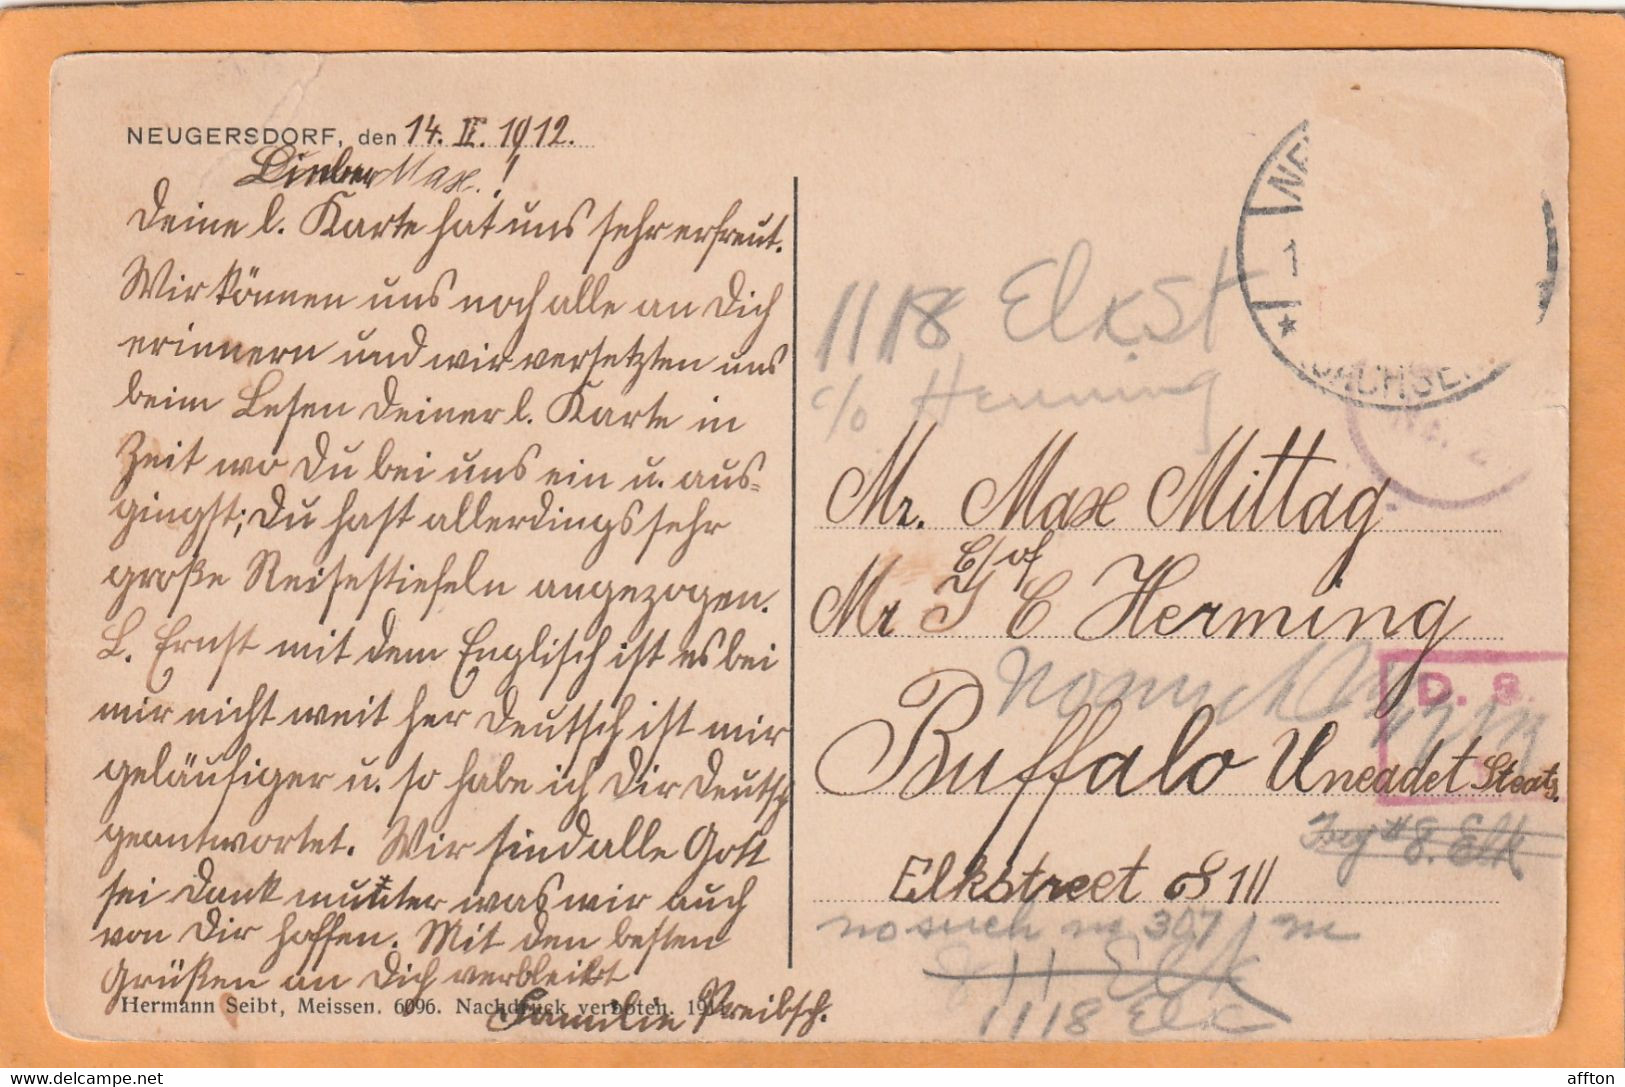 NEUGERSDORF, den 14. II. 1912.
Lieber Max!
Deine l. Karte hat uns sehr erfreut.
Wir können uns noch alle an Dich
erinnern und wir versetzten uns
beim Lesen Deiner l. Karte in
Zeit wo Du bei uns ein u. aus-
gingst; Du hast allerdings sehr
große Reisestiefeln angezogen.
L. Ernst mit dem Englisch ist es bei
mir nicht weit her Deutsch ist mir
geläufiger u. so habe ich Dir Deutsch
geantwortet. Wir sind alle Gott
sei Dank munter was wir auch
von Dir hoffen. Mit den besten
Grüßen an Dich verbleibt
Familie Preibsch.
Hermann Seibt, Meissen. 6096. Nachdruck verboten. 191
1118 Elk St
c/o Henning
Mr. Max Mittag
C/of
Mr C Herming
no such
Buffalo Uneadet Steats.
Elkstreet 811
8. Elk
no such in 307
811 Elk
1118 Elk
D. S.
SACHSEN
affton